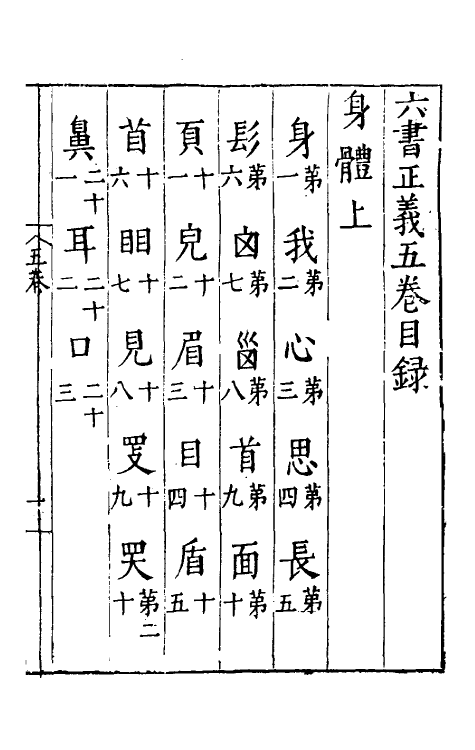 六書正義五卷目録
身體上
身第一 我第二 心第三 思第四 長第五
髟第六 囟第七 第八 首第九 面第十
頁十一 皃十二 眉十三 目十四 盾十五
首十六 䀠十七 見十八 十九 第二十
鼻二十一 耳二十二 口二十三
五卷 一